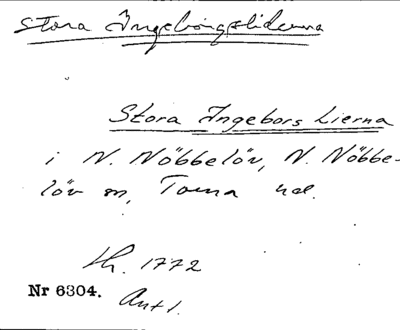 Stora Ingeborgsliderna
Stora Ingebors Lierna
i N. Nöbbelöv, N. Nöbbe-
löv sn, Torna hd.
Lh. 1772
Nr 6304. Ant 1.